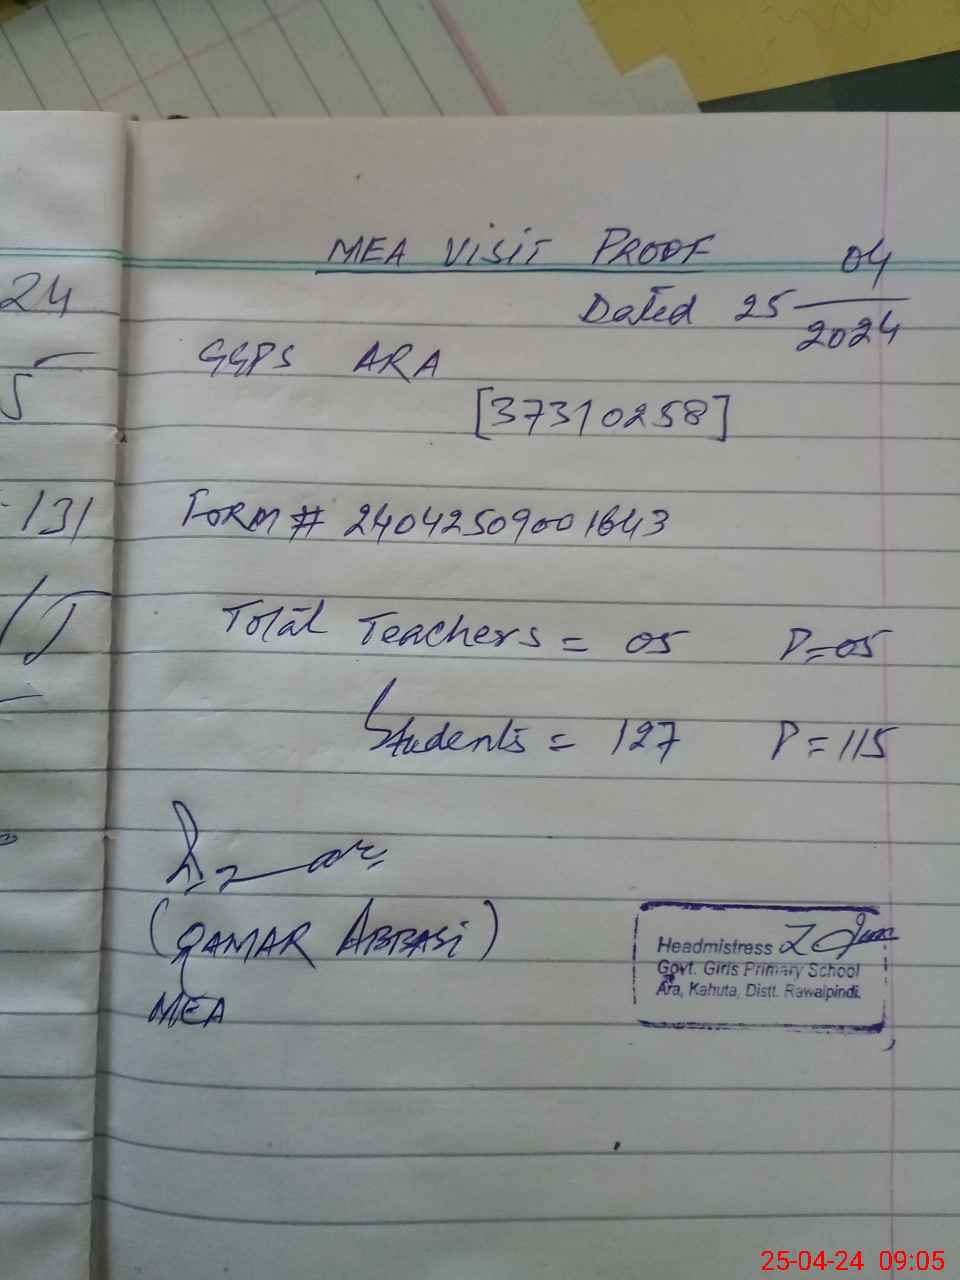 MEA VISIT PROOF
Dated 25 04/2024
GGPS ARA
[37310258]
Form # 24042509001643
Total Teachers = 05 P=05
Students = 127 P=115
(QAMAR ABBASI)
MEA
Headmistress
Govt. Girls Primary School
Ara, Kahuta, Distt. Rawalpindi.
24
5
131
25-04-24 09:05